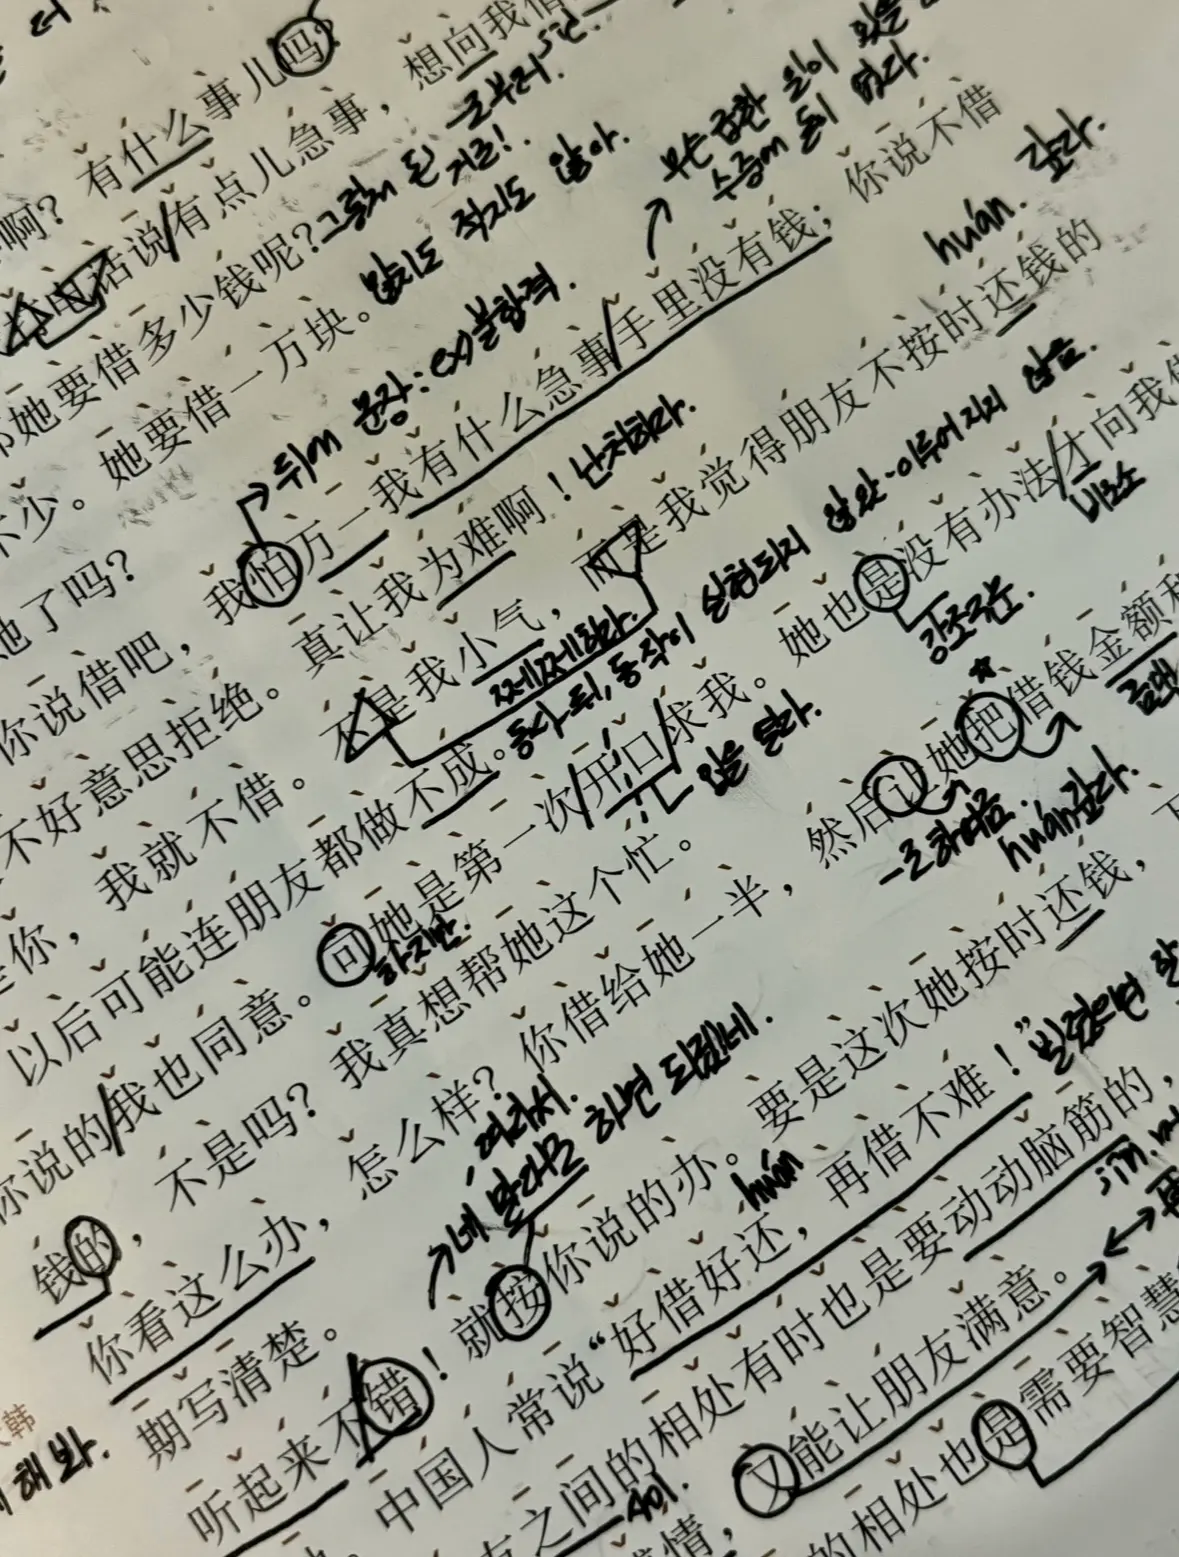 啊？有什么事儿吗？
电话说有点儿急事，想向我借
그렇게 된 거군!
她要借多少钱呢？
많지도 적지도 않아.
少。她要借一万块。
무슨 급한 일이
수중에 돈이 없다.
她了吗？
뒤에 문장: ex)불합격.
你说借吧，我怕万一我有什么急事手里没有钱；你说不借
huán. 갚다.
不好意思拒绝。真让我为难啊！
난처하다.
你，我就不借。不是我小气，而是我觉得朋友不按时还钱的
쩨쩨하다.
以后可能连朋友都做不成。
동사 뒤, 동작이 실현되지 않았·이루어지지 않음.
你说的我也同意。可她是第一次开口求我。她也是没有办法才向我借
하지만.
입을 열다.
강조구문.
비로소
钱的，不是吗？我真想帮她这个忙。
你看这么办，怎么样？你借给她一半，然后让她把借钱金额和
huán갚다.
期写清楚。
네 말대로 하면 되겠네.
听起来不错！就按你说的办。要是这次她按时还钱，下
huán
中国人常说“好借好还，再借不难！”
之间的相处有时也是要动动脑筋的，
사이.
情，又能让朋友满意。
的相处也是需要智慧
해 봐.
韩